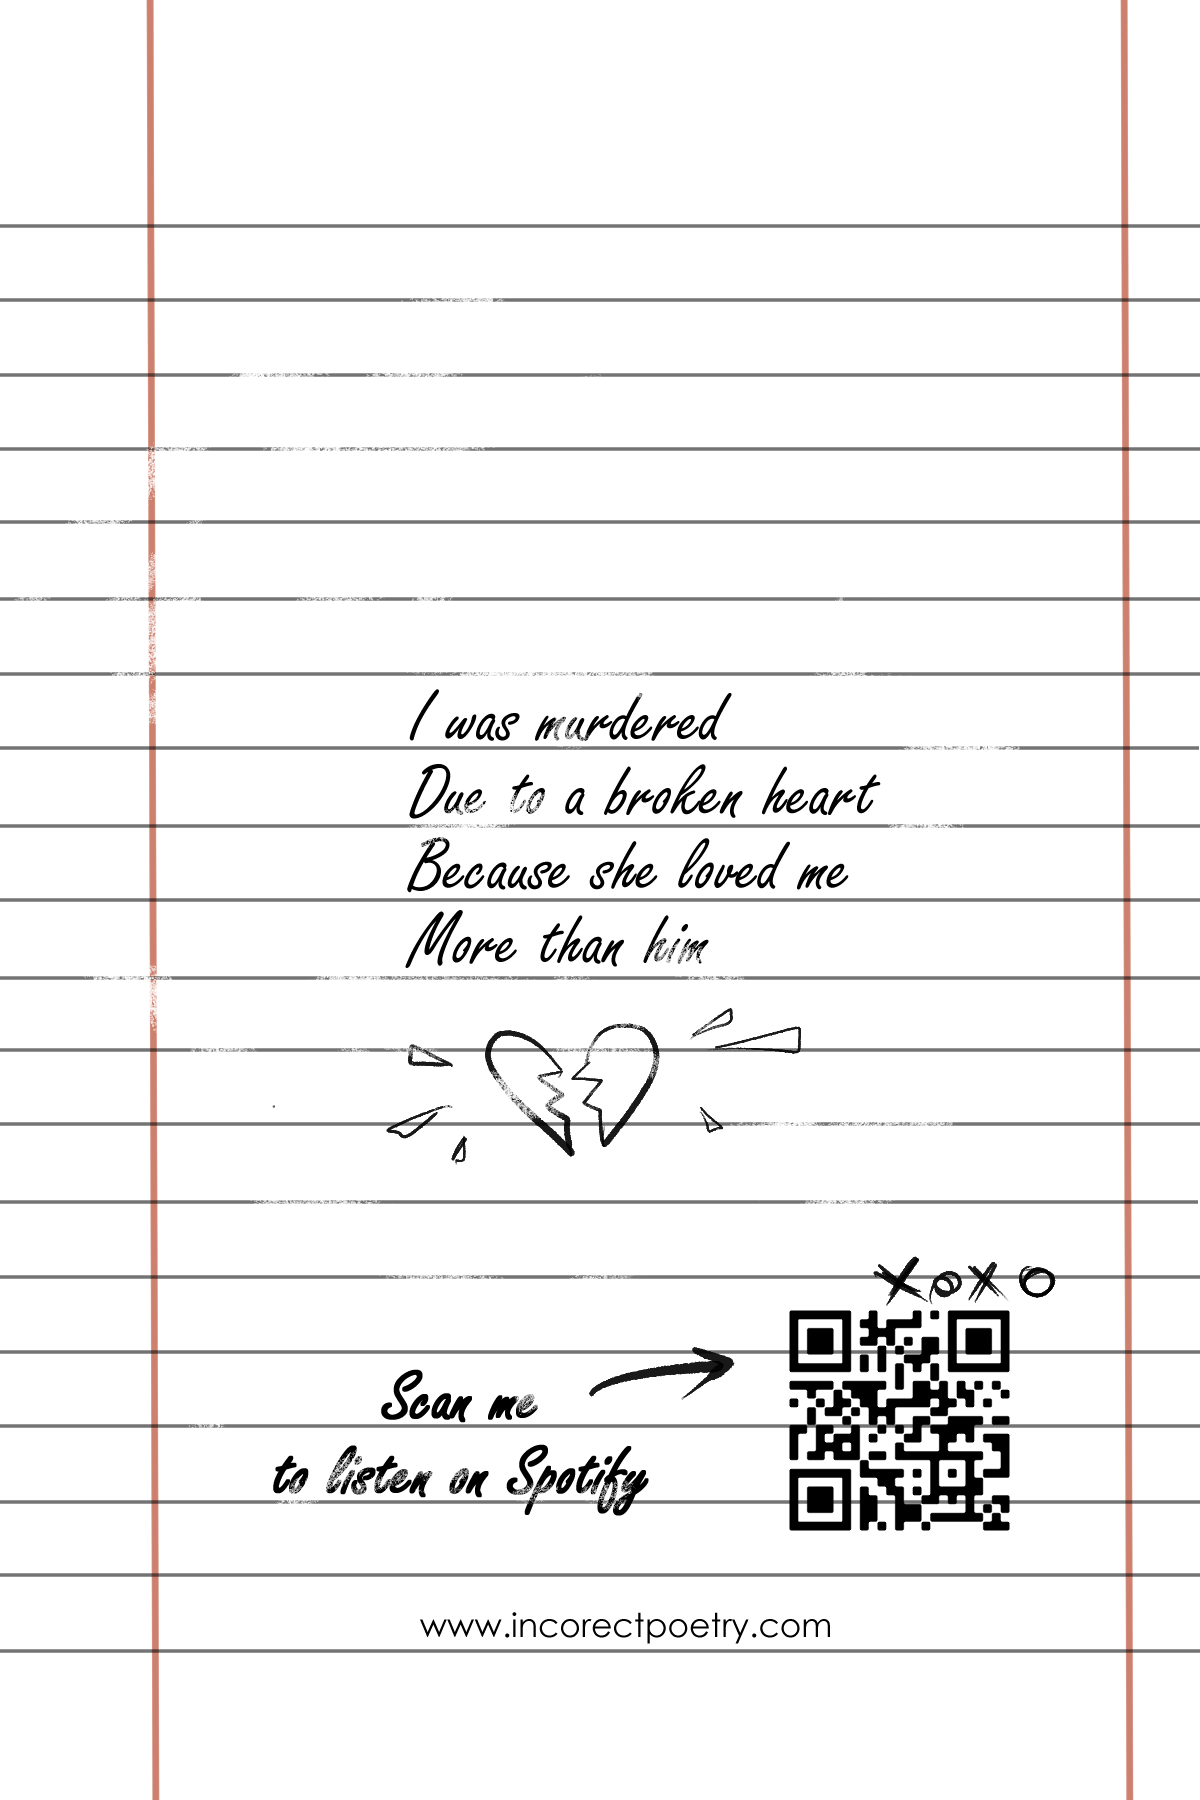 I was murdered
Due to a broken heart
Because she loved me
More than him
XOXO
Scan me
to listen on Spotify
www.incorectpoetry.com